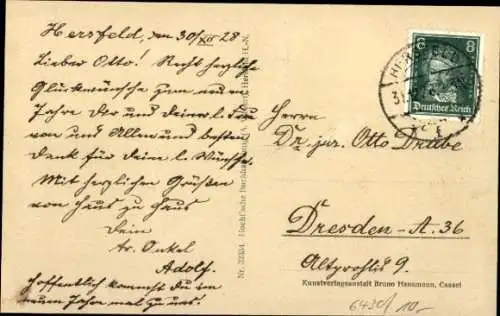 Hersfeld, den 30/XII 28
Lieber Otto! Recht herzliche
Glückwünsche zum neuen
Jahre Dir und deiner l. Frau
von uns Allen und besten
Dank für Deine l. Wünsche.
Mit herzlichen Grüßen
von Haus zu Haus
Dein
tr. Onkel
Adolf.
Hoffentlich kommst du im
neuen Jahre mal zu uns.
Nr. 32354.
8 8
Deutsches Reich
Herrn
Dr. jur. Otto
Dresden-A. 36
9.
Kunstverlagsanstalt Bruno Hansmann, Cassel
10,-